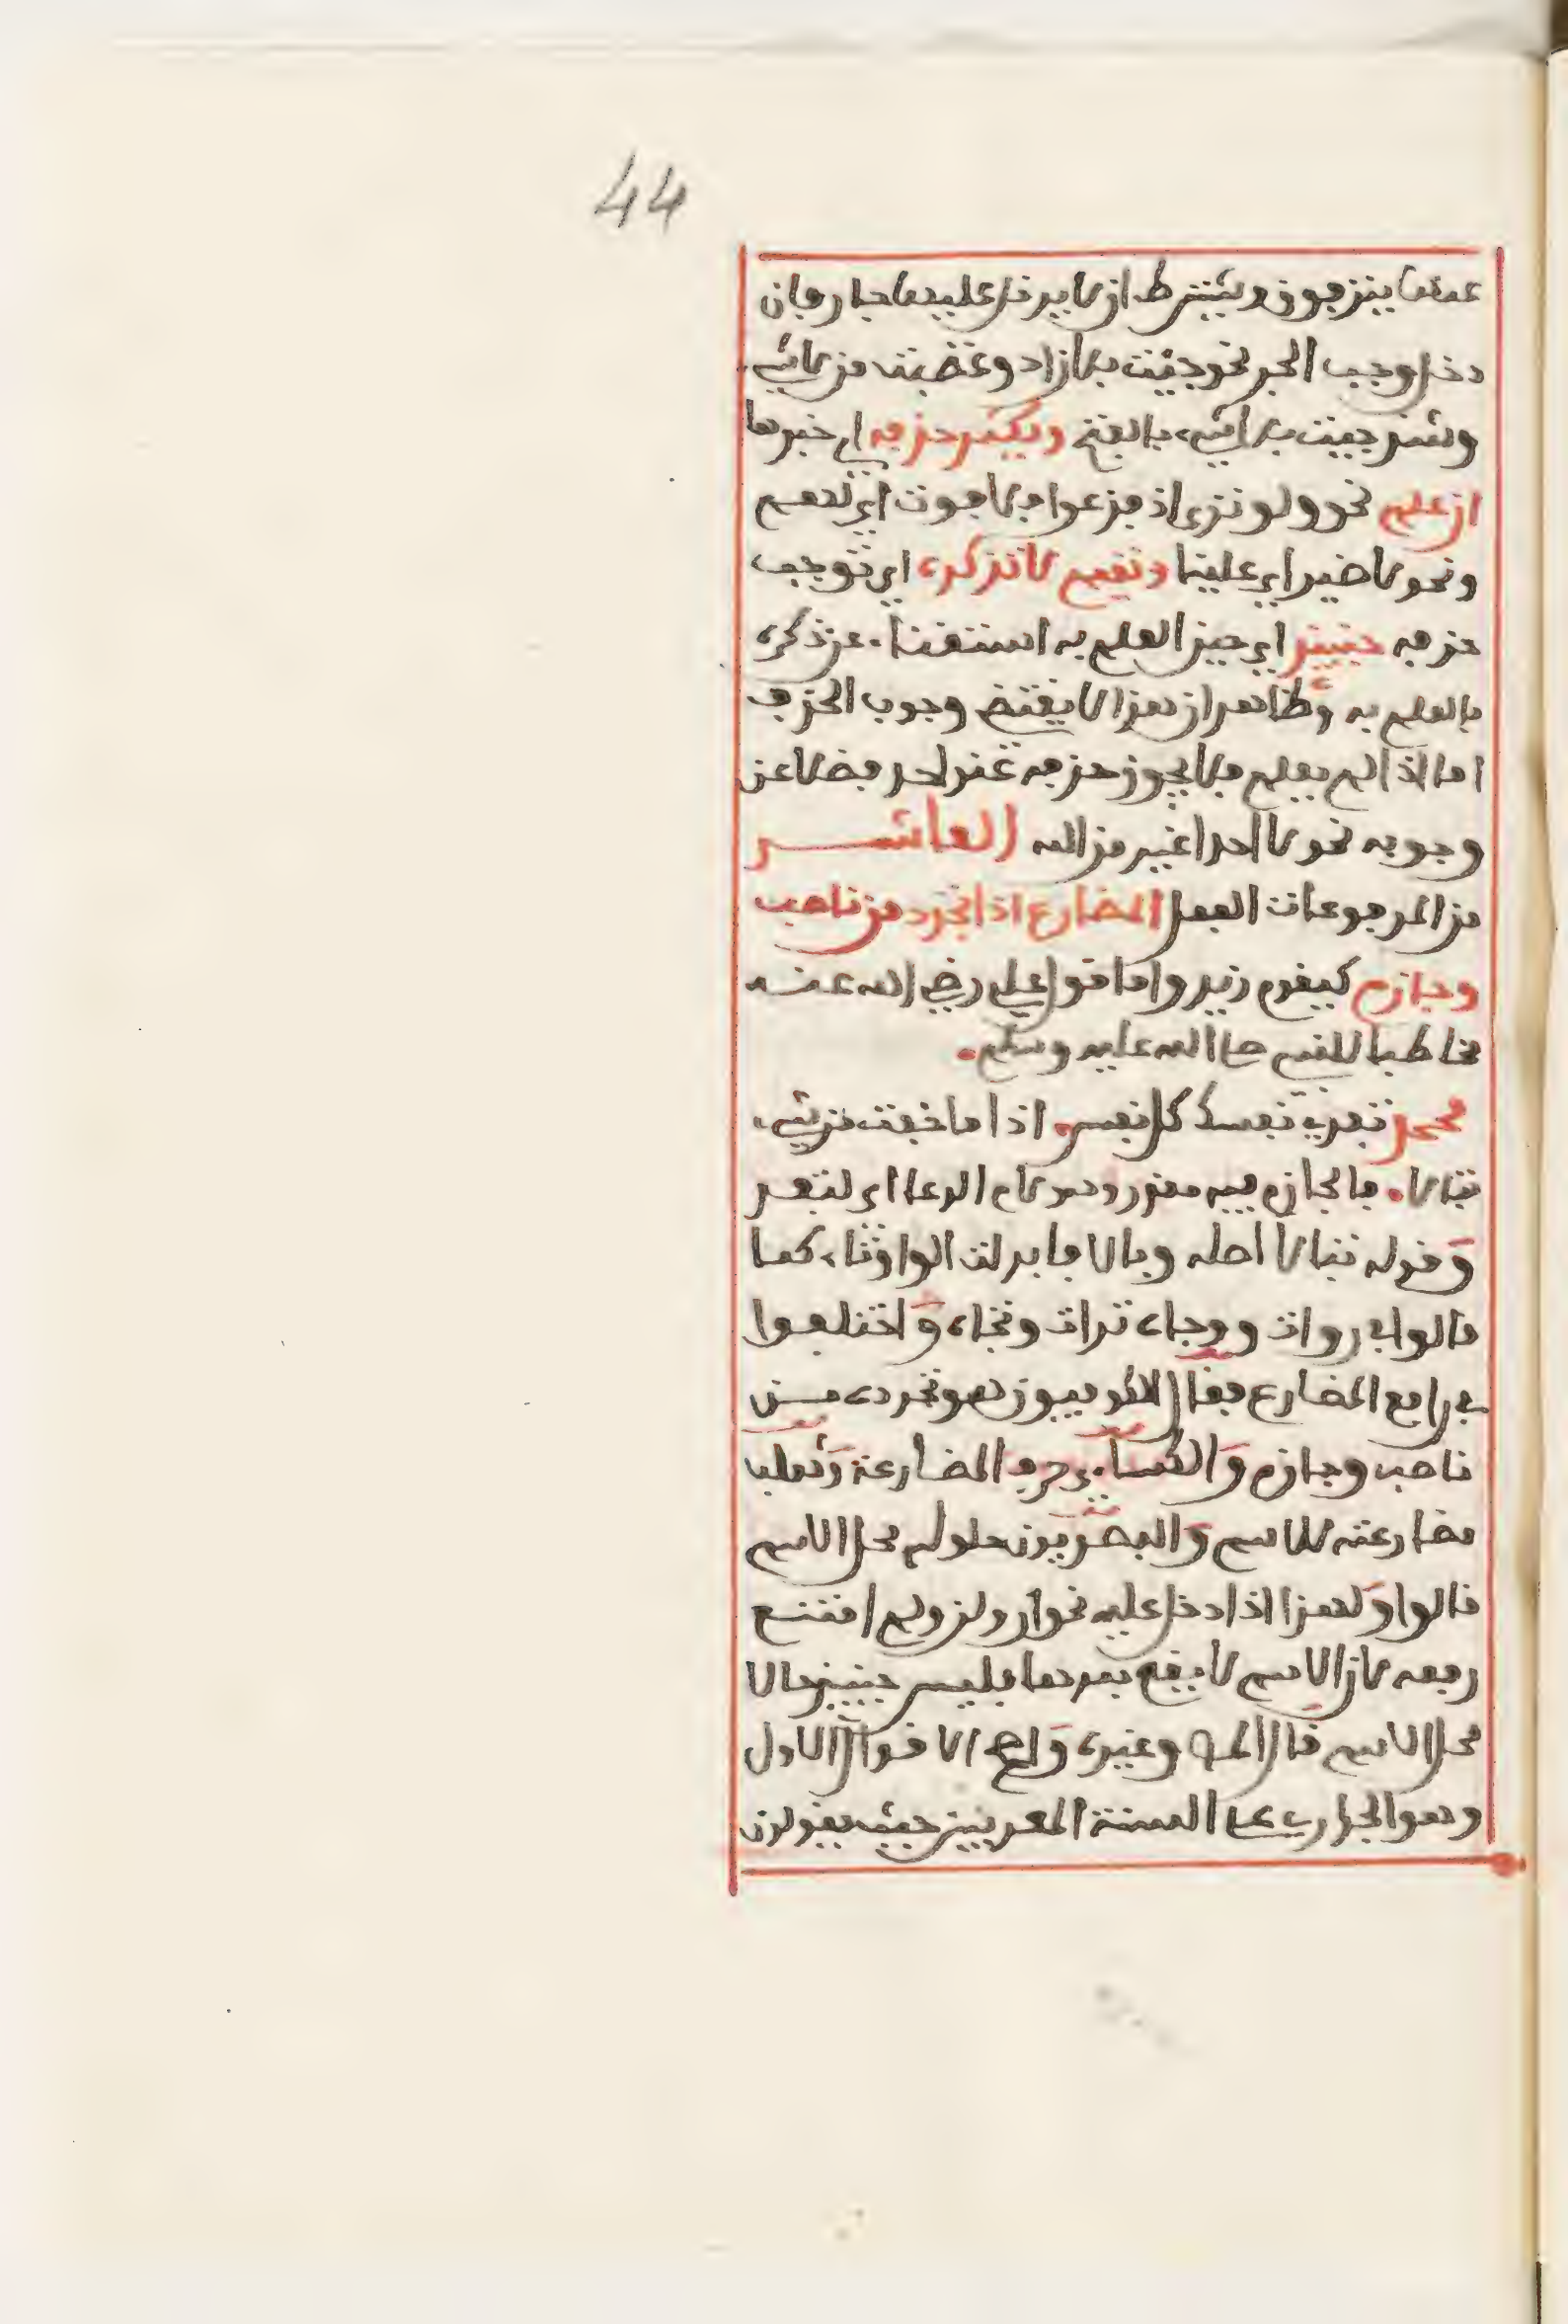 44
عنها ينزفون ويشترط ان لا يدخل عليها جار فإن
دخل وجب الجر نحو جئت بلا زاد وغضبت من لا شيء
وشذ جئت بلا شيء بالفتح ويكثر حذفه اي خبرها
ان علم نحو ولو ترى اذ فزعوا فلا فوت اي لهم
ونحو لا ضير اي علينا وتميم لا تذكره اي توجب
حذفه حينئذ اي حين العلم به استغناء عن ذكره
بالعلم به وظاهر ان هذا لا يقتضي وجوب الحذف
اما اذا لم يعلم فلا يجوز حذفه عند احد فضلا عن
وجوبه نحو لا احد اغير من الله العاشر
من المرفوعات الفعل المضارع اذا تجرد من ناصب
وجازم كيقوم زيد واما قول علي رضي الله عنه
مخاطبا للنبي صلى الله عليه وسلم
محمد تفد نفسك كل نفس اذا ما خفت من شيء
تبالا فالجازم فيه مقدر وهو لام الدعا اي لتفد
وقوله تبالا اصله وبالا فابدلت الواو تاء كما
قالوا في وراث ووجاه تراث وتجاه واختلفوا
في رافع المضارع فقال الكوفيون هو تجرده من
ناصب وجازم والكساءي حرف المضارعة وثعلب
مضارعته للاسم والبصريون حلوله محل الاسم
قالوا ولهذا اذا دخل عليه نحو ان ولن ولم امتنع
رفعه لان الاسم لا يقع بعدها فليس حينئذ حالا
محل الاسم قال المص وغيره واصح الاقوال الاول
وهو الجاري على السنة المعربين حيث يقولون